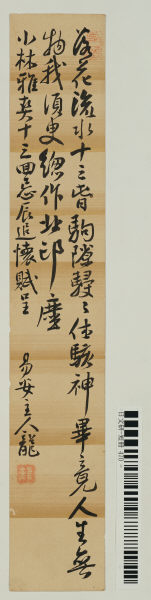 落花流水十三皆駒隙駸々使駭神畢竟人生無
物我須臾總作北邙塵
小林雅契十三回忌辰追懷賦呈
易安主人龍